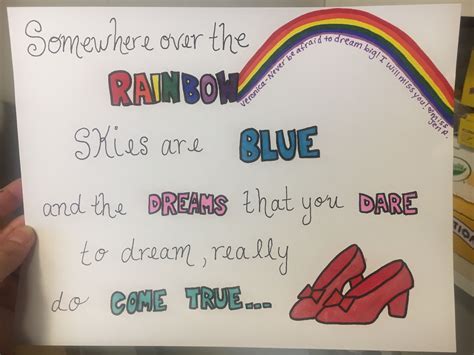 Somewhere over the
RAINBOW
Veronica - Never be afraid to dream big! I will miss you!
Skies are BLUE
and the DREAMS that you DARE
to dream, really
do COME TRUE...